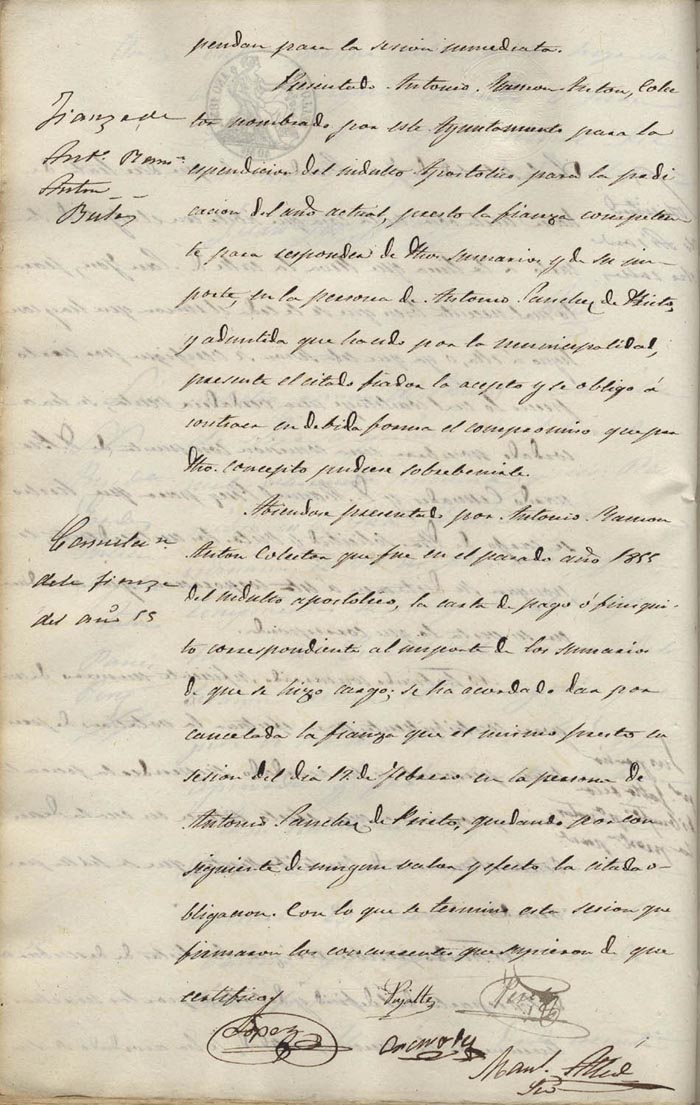 pendan para la sesion inmediata.
Fianza de
Ant.º Ramon
Anton
Presentado Antonio Ramon Anton, Colec
tor nombrado por este Ayuntamiento para la
espendicion del indulto Apostolico para la predi
cacion del año actual, presto la fianza competen
te para responder de dhos. sumarios y de su im-
porte, en la persona de Antonio Sanchez de
y admitida que ha sido por la municipalidad,
presente el citado fiador la acepto y se obligo á
contraer en debida forma el compromiso que por
dho. concepto pudiese sobrebenirle.
dela fianza
del año 55
Abiendose presentado por Antonio Ramon
Anton Colector que fue en el pasado año 1855
del indulto apostolico, la carta de pago ó finiqui-
to correspondiente al importe de los sumarios
de que se hizo cargo; se ha acordado dar por
cancelada la fianza que el mismo presto en
sesion del dia 12 de febrero en la persona de
Antonio Sanchez de Prieto, quedando por con
siguiente de ningun valor y efecto la citada o-
bligacion. Con lo que se termino esta sesion que
firmaron los concurrentes que supieron de que
certifico
Lopez
Man.l
Srio